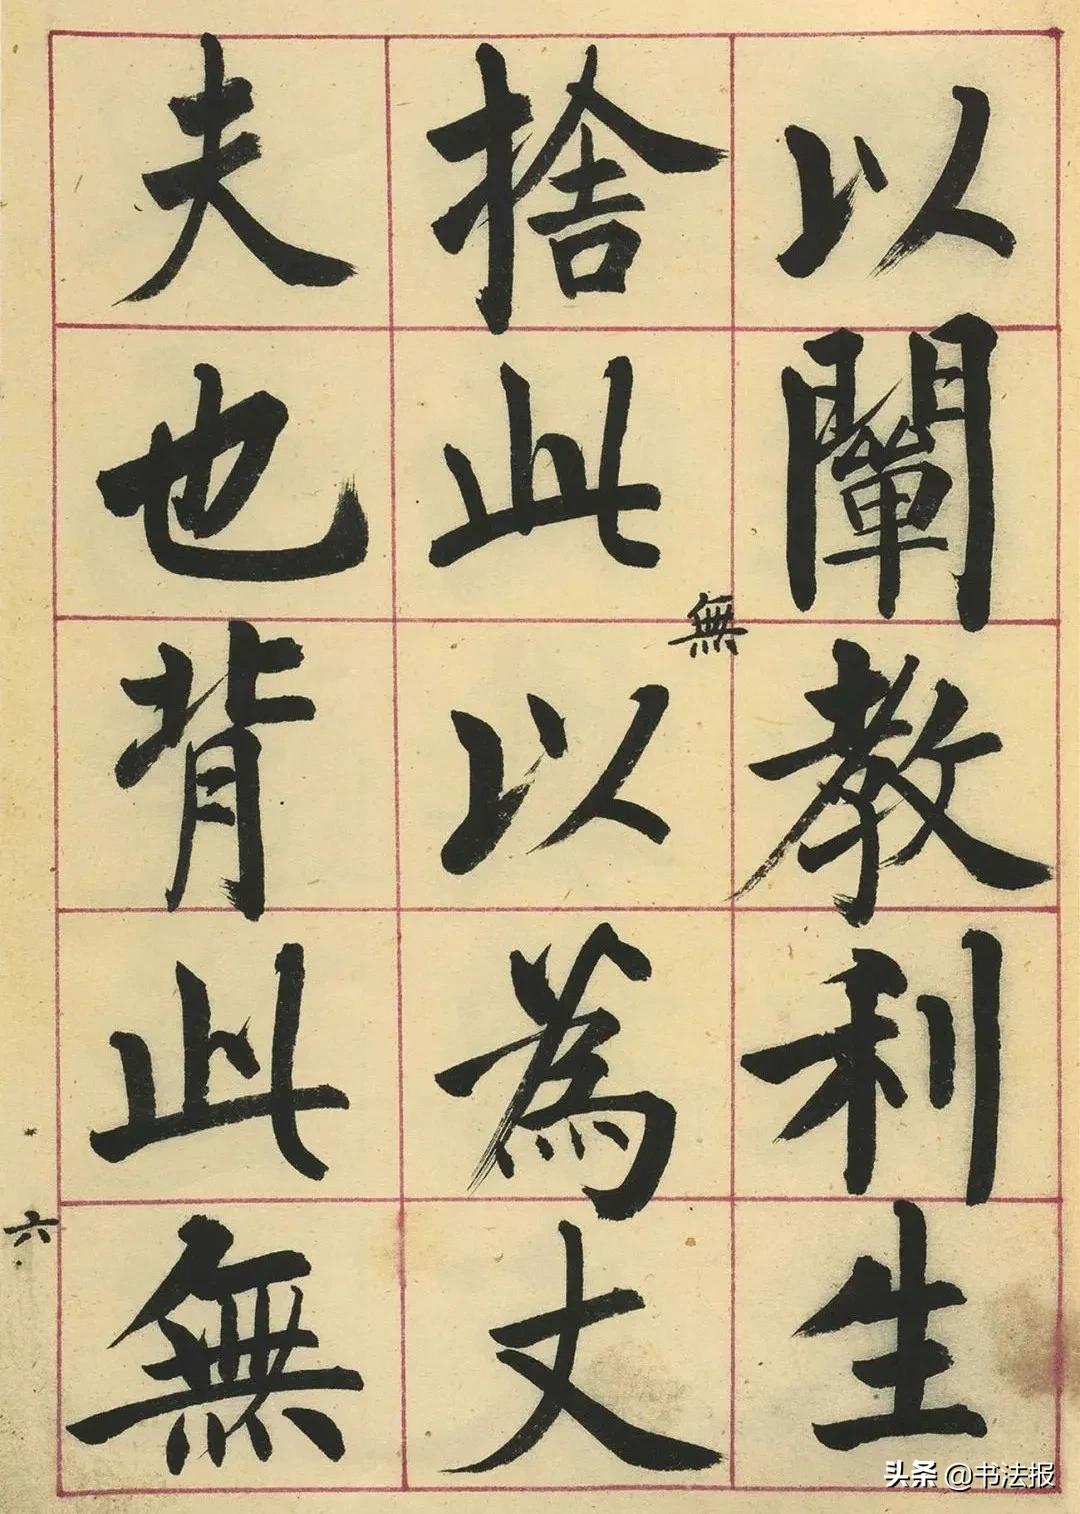 以闡教利生
捨此無以為丈
夫也背此無
六
头条 @书法报